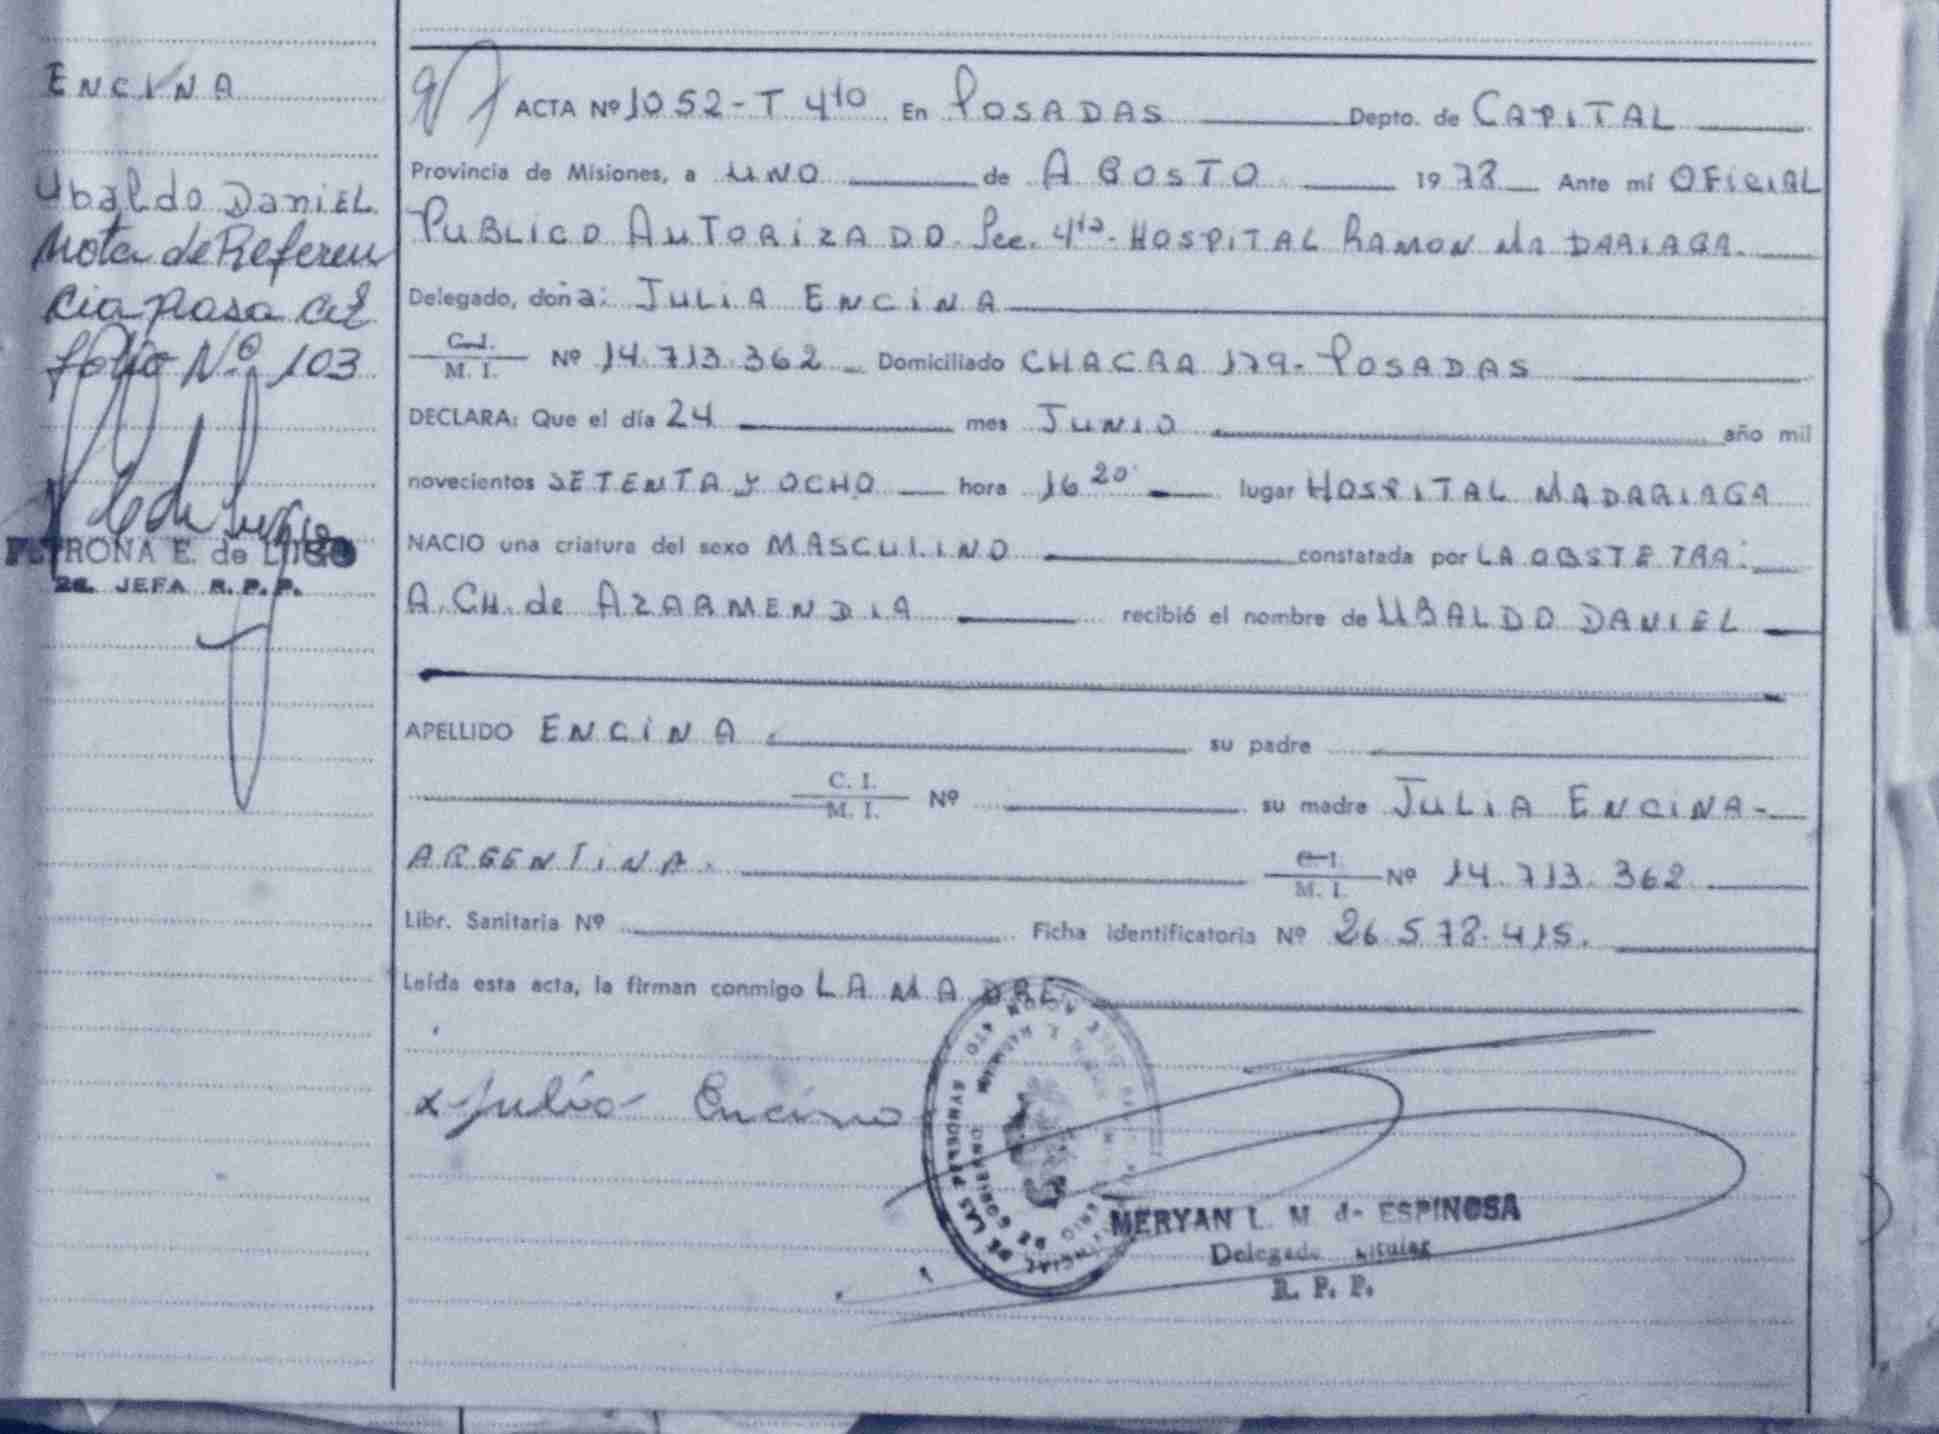 ENCINA
Ubaldo DANIEL
Nota de Referen
cia pasa al
folio Nº 103
PETRONA E. de LUGO
2a. JEFA R. P. P.
ACTA Nº 1052-T 4to En POSADAS Depto. de CAPITAL
Provincia de Misiones, a UNO de AGOSTO 1978 Ante mí OFICIAL
PUBLICO AUTORIZADO Sec. 4ta. HOSPITAL RAMON MADARIAGA.
Delegado, doña: JULIA ENCINA
C.I. M. I. Nº 14.713.362 Domiciliado CHACRA 179-POSADAS
DECLARA: Que el día 24 mes JUNIO año mil
novecientos SETENTA Y OCHO hora 16 20 lugar HOSPITAL MADARIAGA
NACIO una criatura del sexo MASCULINO constatada por LA OBSTETRA:
A. CH. de AZARMENDIA recibió el nombre de UBALDO DANIEL
APELLIDO ENCINA su padre
C. I. M. I. Nº su madre JULIA ENCINA-
ARGENTINA. C. I. M. I. Nº 14.713.362
Libr. Sanitaria Nº Ficha Identificatoria Nº 26.578.415.
Leída esta acta, la firman conmigo LA MADRE
x Julia Encina
MERYAN L. M. de ESPINOSA
Delegado Titular
R. P. P.